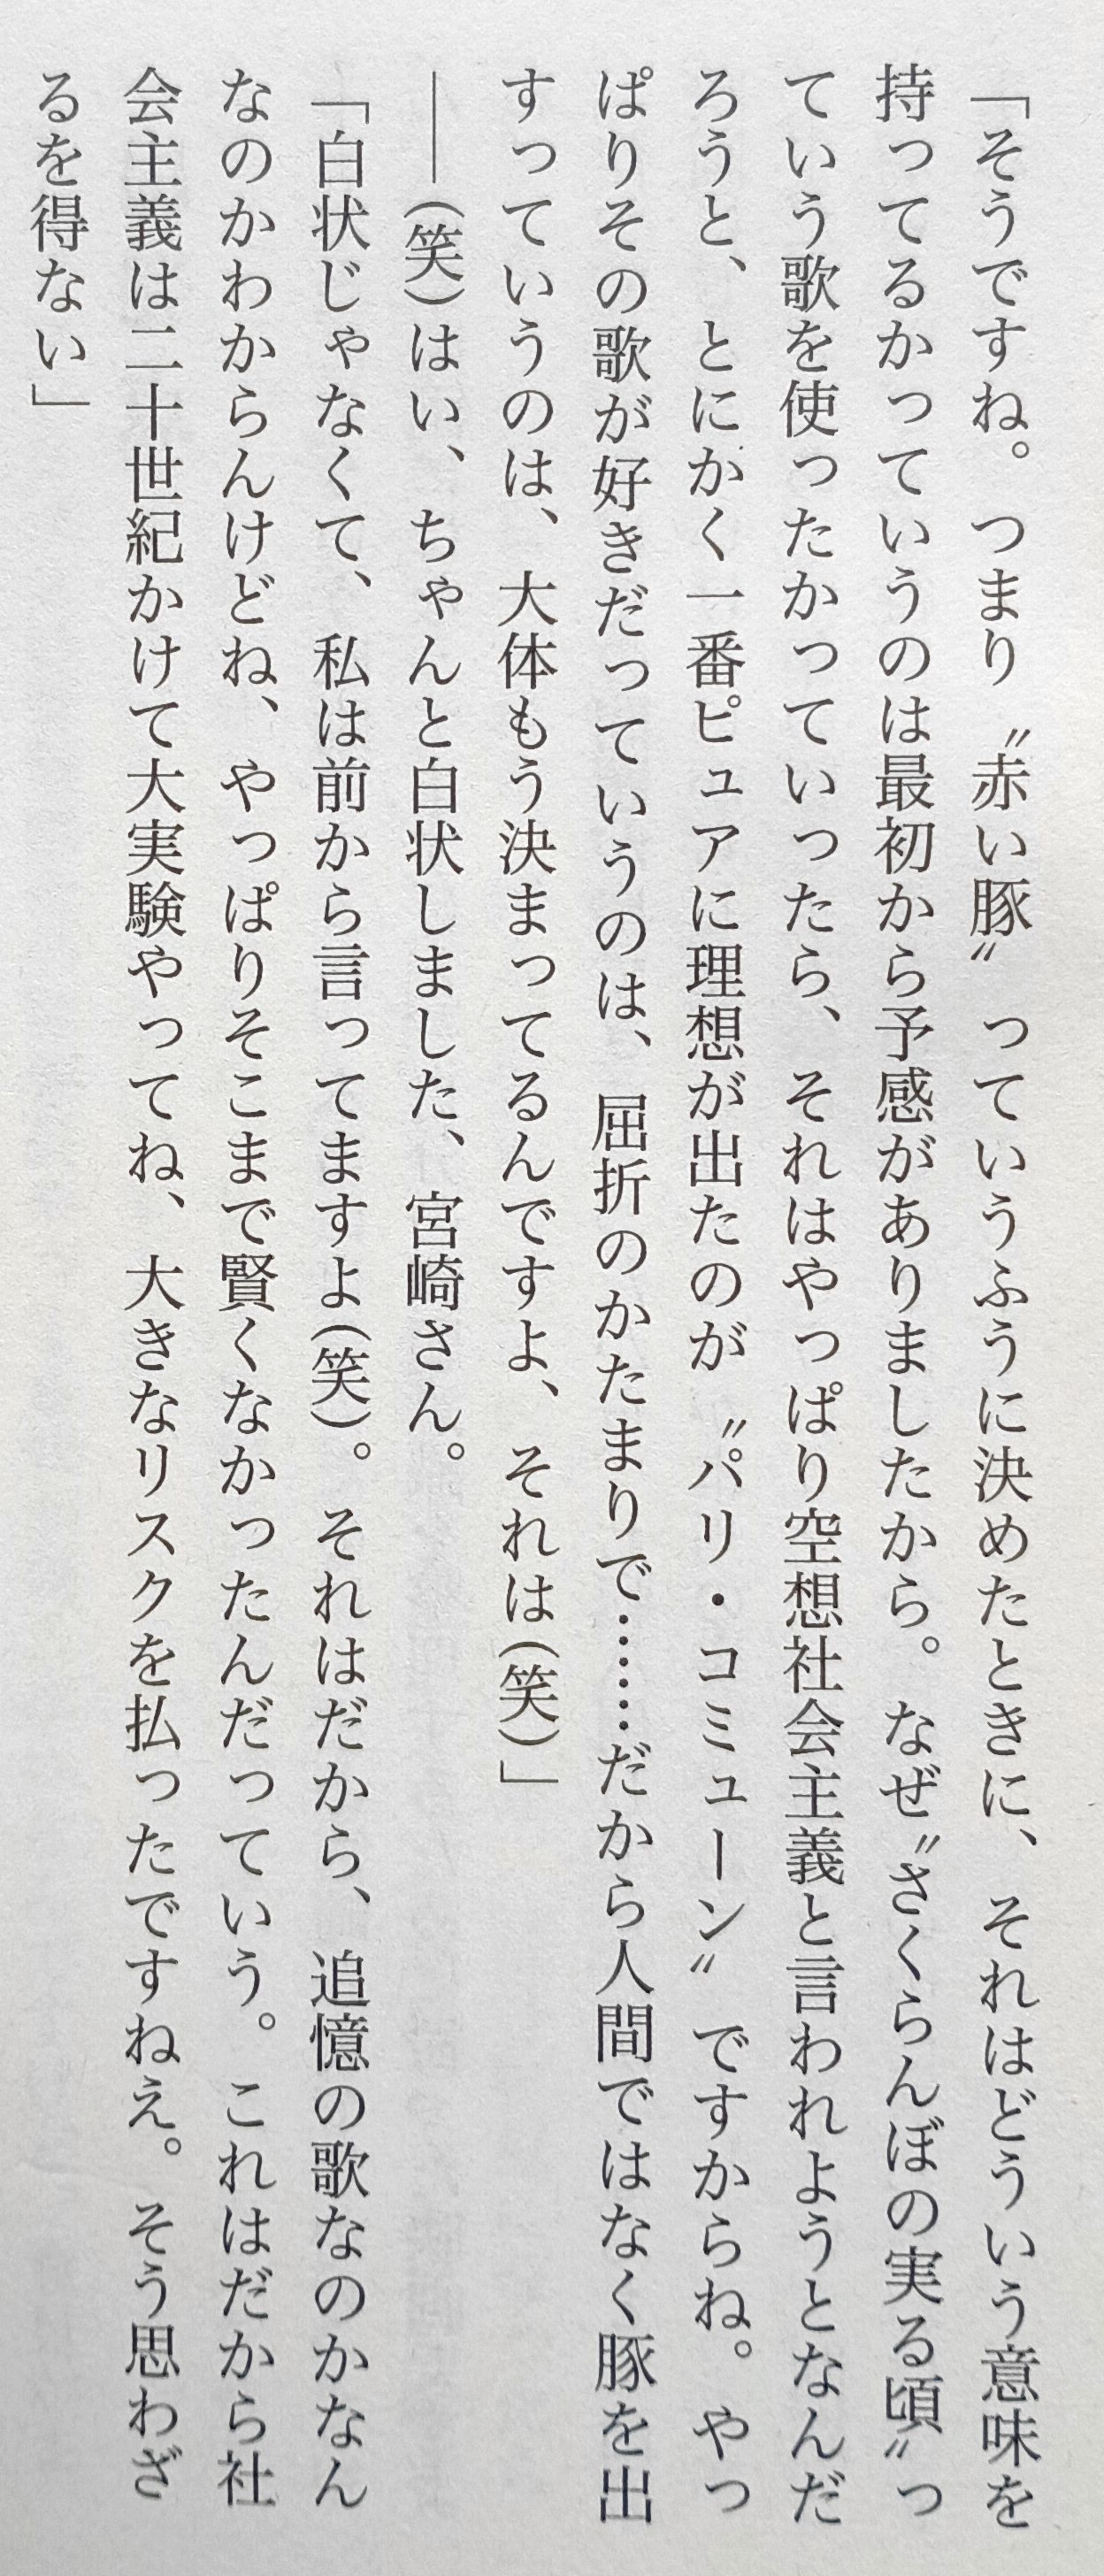 「そうですね。つまり〝赤い豚〟っていうふうに決めたときに、それはどういう意味を
持ってるかっていうのは最初から予感がありましたから。なぜ〝さくらんぼの実る頃〟っ
ていう歌を使ったかっていったら、それはやっぱり空想社会主義と言われようとなんだ
ろうと、とにかく一番ピュアに理想が出たのが〝パリ・コミューン〟ですからね。やっ
ぱりその歌が好きだっていうのは、屈折のかたまりで……だから人間ではなく豚を出
すっていうのは、大体もう決まってるんですよ、それは(笑)」
――(笑)はい、ちゃんと白状しました、宮崎さん。
「白状じゃなくて、私は前から言ってますよ(笑)。それはだから、追憶の歌なのかなん
なのかわからんけどね、やっぱりそこまで賢くなかったんだっていう。これはだから社
会主義は二十世紀かけて大実験やってね、大きなリスクを払ったですねえ。そう思わざ
るを得ない」